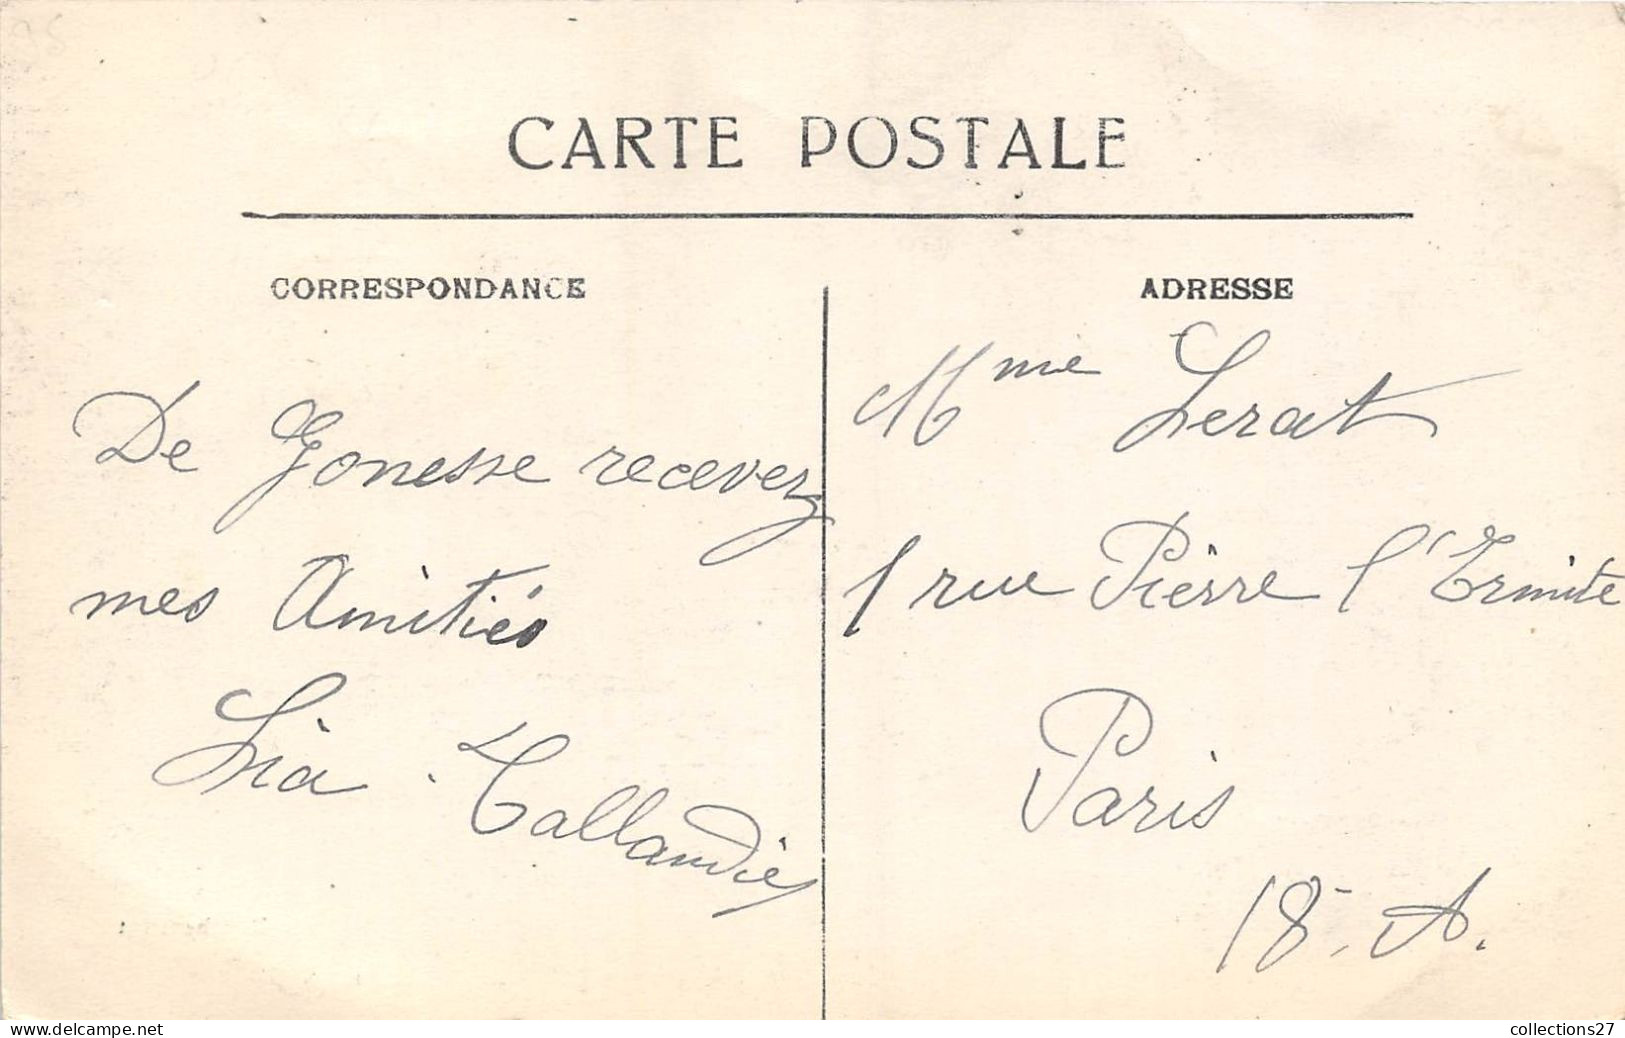 CARTE POSTALE
CORRESPONDANCE
De Gonesse recevez
mes Amitiés
Lia Tallandier
ADRESSE
Mme Lerat
1 rue Pierre l'Ermite
Paris
18. A.
www.delcampe.net
collections27